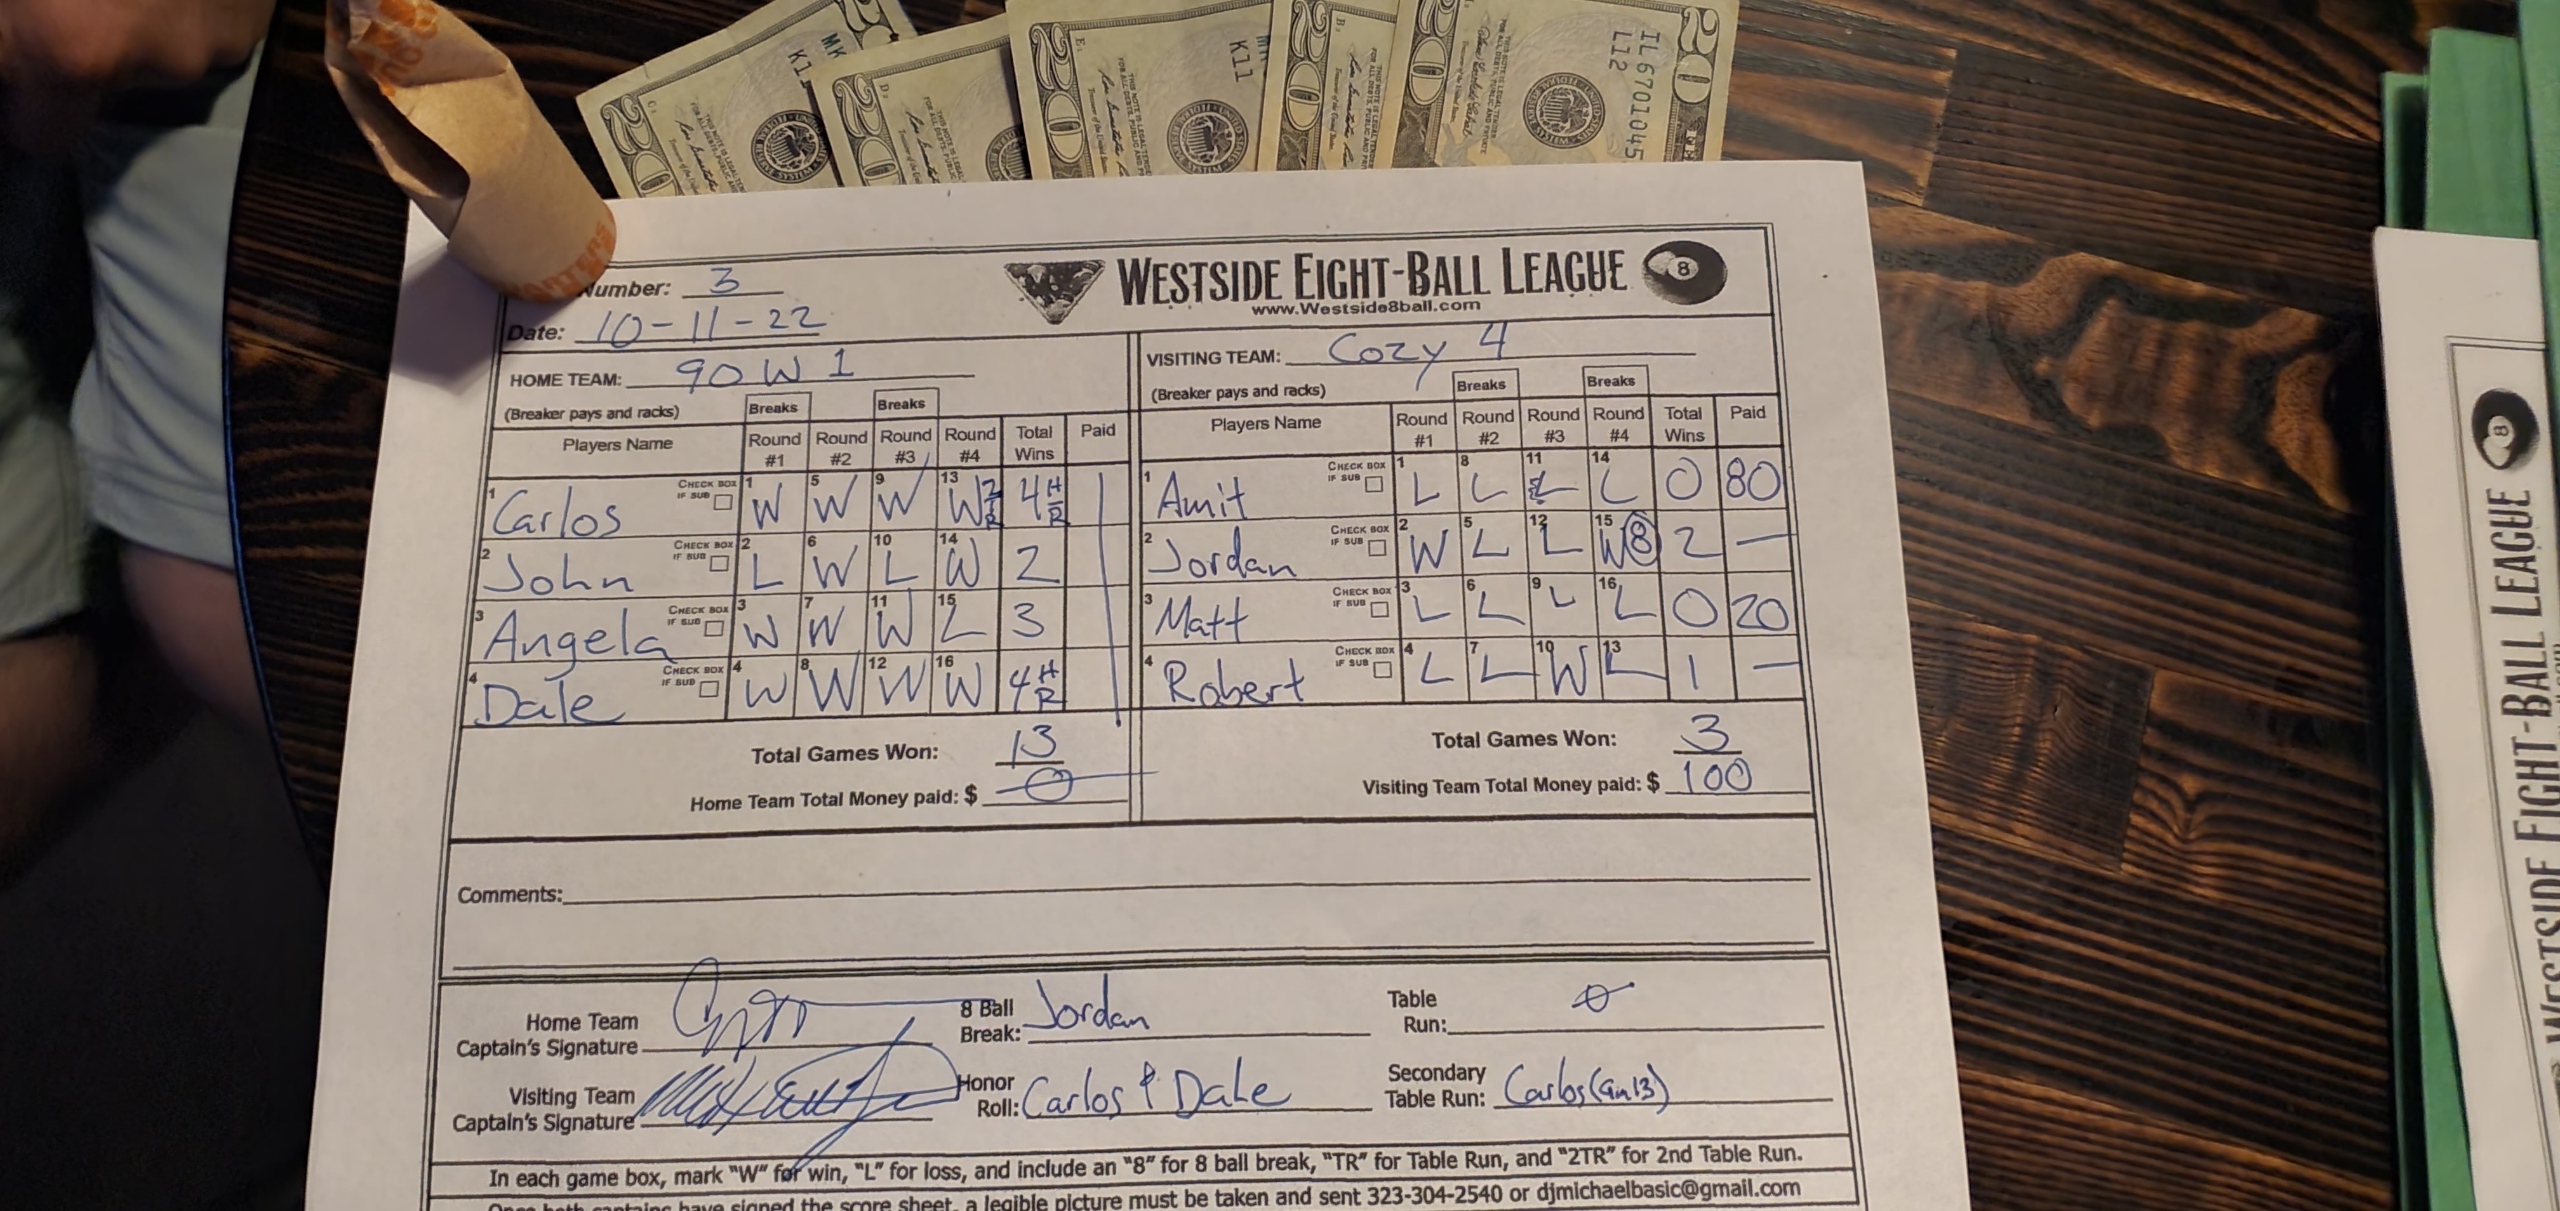 MK
K11
K11
IL 6701045
L12
20 20 20 20 20 20
Number: 3
WESTSIDE EIGHT-BALL LEAGUE 8
www.Westside8ball.com
Date: 10-11-22
HOME TEAM: 90 W 1
VISITING TEAM: Cozy 4
(Breaker pays and racks) Breaks Breaks
(Breaker pays and racks) Breaks Breaks
Players Name Round #1 Round #2 Round #3 Round #4 Total Wins Paid
Players Name Round #1 Round #2 Round #3 Round #4 Total Wins Paid
1 Carlos CHECK BOX IF SUB 1 W 5 W 9 W 13 W 2TR 4 HR
1 Amit CHECK BOX IF SUB 1 L 8 L 11 L 14 L 0 80
2 John CHECK BOX IF SUB 2 L 6 W 10 L 14 W 2
2 Jordan CHECK BOX IF SUB 2 W 5 L 12 L 15 W 8 2 —
3 Angela CHECK BOX IF SUB 3 W 7 W 11 W 15 L 3
3 Matt CHECK BOX IF SUB 3 L 6 L 9 L 16 L 0 20
4 Dale CHECK BOX IF SUB 4 W 8 W 12 W 16 W 4 HR
4 Robert CHECK BOX IF SUB 4 L 7 L 10 W 13 L 1 —
Total Games Won: 13
Total Games Won: 3
Home Team Total Money paid: $ 0
Visiting Team Total Money paid: $ 100
Comments:
Home Team Captain's Signature
8 Ball Break: Jordan
Table Run: 0
Visiting Team Captain's Signature
Honor Roll: Carlos & Dale
Secondary Table Run: Carlos (Gm 13)
In each game box, mark "W" for win, "L" for loss, and include an "8" for 8 ball break, "TR" for Table Run, and "2TR" for 2nd Table Run.
Once both captains have signed the score sheet, a legible picture must be taken and sent 323-304-2540 or djmichaelbasic@gmail.com
8
WESTSIDE EIGHT-BALL LEAGUE